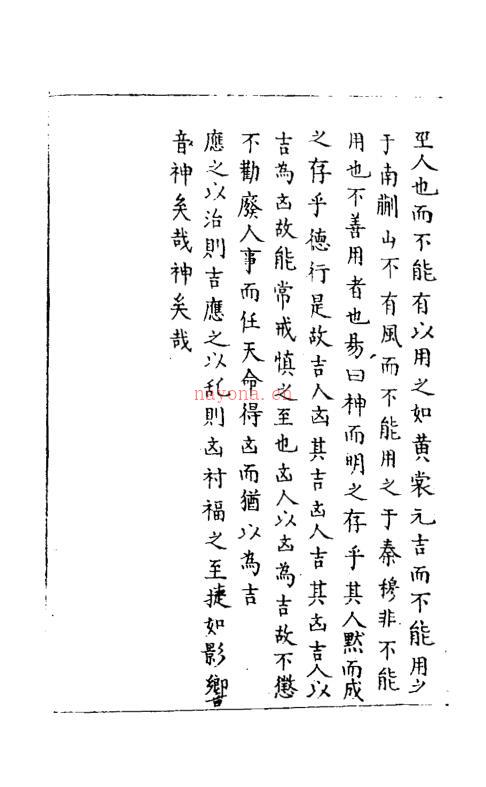 人也而不能有以用之如黄裳元吉而不能用之
于南蒯山不有風而不能用之于秦穆非不能
用也不善用者也易曰神而明之存乎其人黙而成
之存乎德行是故吉人凶其吉凶人吉其凶吉人以
吉為凶故能常戒慎之至也凶人以凶為吉故不懲
不勸廢人事而任天命得凶而猶以為吉
應之以治則吉應之以乱則凶村福之至捷如影響
音神矣哉神矣哉
nayona.cn